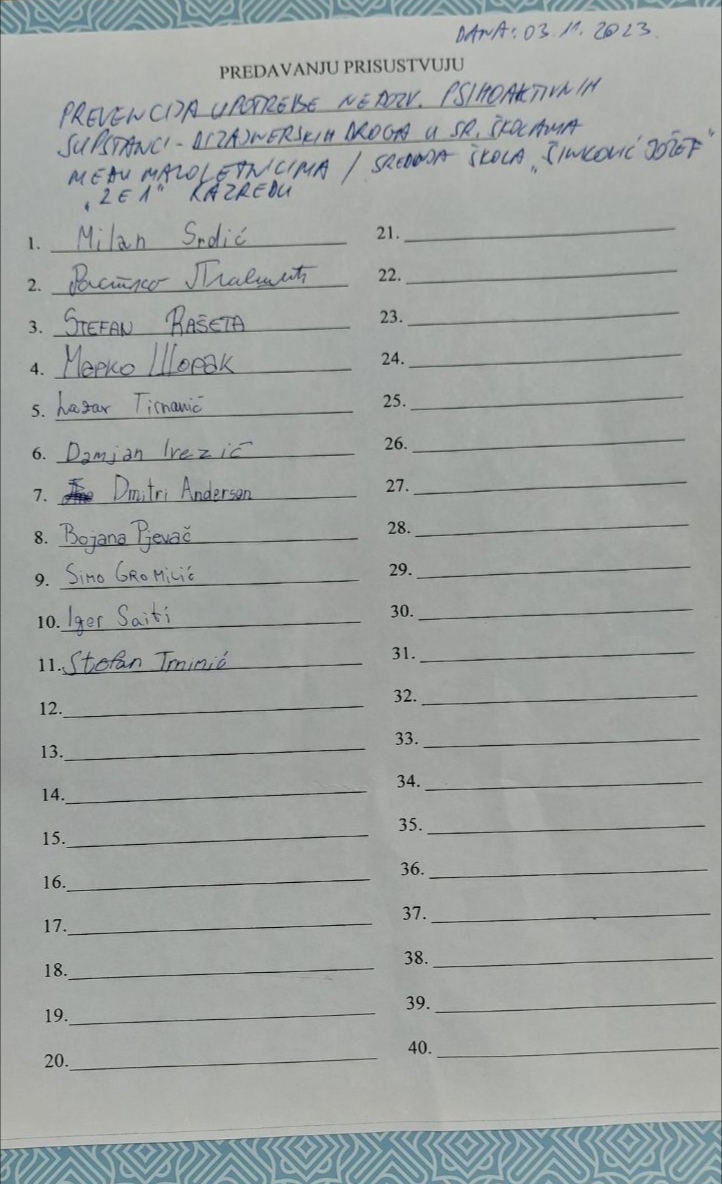 DANA: 03.11.2023.
PREDAVANJU PRISUSTVUJU
PREVENCIJA UPOTREBE NEDOZV. PSIHOAKTIVNIH
SUPSTANCI - DIZAJNERSKIH DROGA U SR. ŠKOLAMA
MEĐU MALOLETNICIMA / SREDNJA ŠKOLA „ŠINKOVIĆ JOŽEF"
„2E1" RAZREDU
1. Milan Srdić
2.
3. STEFAN RAŠETA
4. Марко Шорак
5. Lazar
6. Damjan Irezić
7. Dmitri Anderson
8. Bojana Pjevač
9. SIMO GROMILIĆ
10. Igor Saiti
11. Stefan Trninić
12.
13.
14.
15.
16.
17.
18.
19.
20.
21.
22.
23.
24.
25.
26.
27.
28.
29.
30.
31.
32.
33.
34.
35.
36.
37.
38.
39.
40.